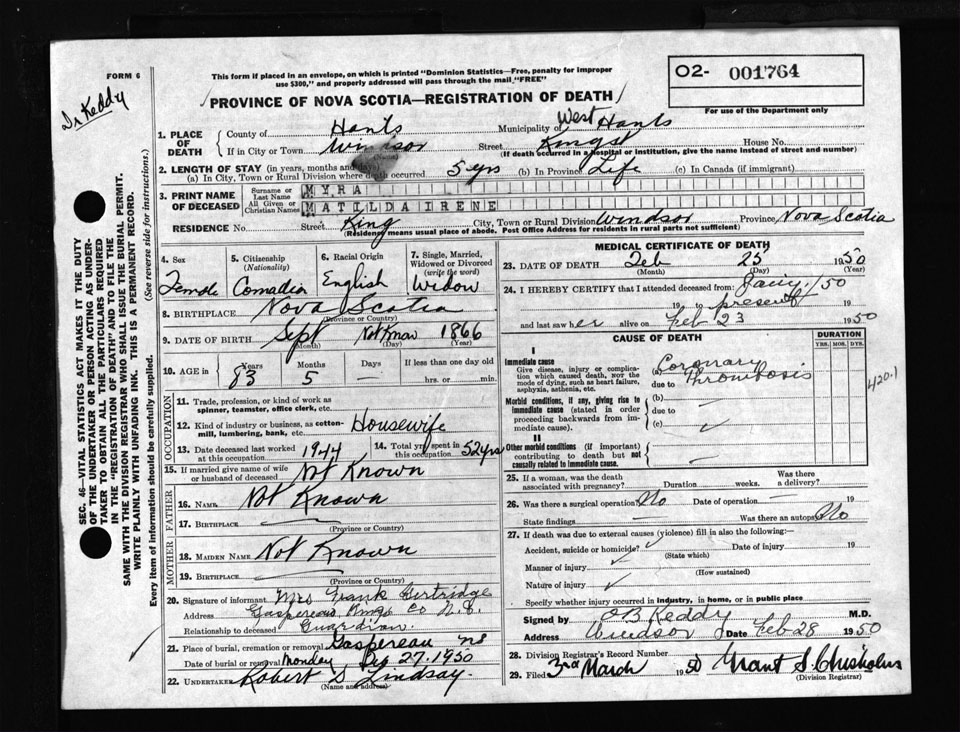 FORM 6
Dr Keddy
This form if placed in an envelope, on which is printed "Dominion Statistics—Free, penalty for improper
use $300," and properly addressed will pass through the mail "FREE"
PROVINCE OF NOVA SCOTIA—REGISTRATION OF DEATH
O2- 001764
For use of the Department only
1. PLACE OF DEATH
County of Hants Municipality of West Hants
If in City or Town Windsor Street Kingst House No.
(If death occurred in a hospital or institution, give the name instead of street and number)
2. LENGTH OF STAY (in years, months and
(a) In City, Town or Rural Division where death occurred 5 yrs (b) In Province Life (c) In Canada (if immigrant)
3. PRINT NAME OF DECEASED
Surname or Last Name MYRA
All Given or Christian Names MATILDA IRENE
RESIDENCE No. Street King City, Town or Rural Division Windsor Province Nova Scotia
(Residence means usual place of abode. Post Office Address for residents in rural parts not sufficient)
4. Sex Female
5. Citizenship (Nationality) Canadian
6. Racial Origin English
7. Single, Married, Widowed or Divorced (write the word) Widow
8. BIRTHPLACE Nova Scotia
(Province or Country)
9. DATE OF BIRTH Sept Not Know 1866
(Month) (Day) (Year)
10. AGE in Years 83 Months 5 Days — If less than one day old hrs. or min.
OCCUPATION
11. Trade, profession, or kind of work as
spinner, teamster, office clerk, etc.
12. Kind of industry or business, as cotton-
mill, lumbering, bank, etc. Housewife
13. Date deceased last worked at this occupation 1944
14. Total yrs. spent in this occupation 52 yrs
15. If married give name of wife or husband of deceased Not Known
FATHER
16. Name Not Known
17. Birthplace
(Province or Country)
MOTHER
18. Maiden Name Not Known
19. Birthplace
(Province or Country)
20. Signature of informant Mrs Frank Gertridge
Address Gaspereau Kings Co N.S.
Relationship to deceased Guardian.
21. Place of burial, cremation or removal Gaspereau NS
Date of burial or removal Monday 27. 1950
22. Undertaker Robert S Lindsay.
(Name and address)
MEDICAL CERTIFICATE OF DEATH
23. DATE OF DEATH Feb 25 1950
(Month) (Day) (Year)
24. I HEREBY CERTIFY that I attended deceased from: /50
19 to present 19
and last saw her alive on Feb 23 1950
CAUSE OF DEATH
DURATION
YRS. MOS. DYS.
I
Immediate cause
Give disease, injury or complica-
tion which caused death, not the
mode of dying, such as heart failure,
asphyxia, asthenia, etc.
(a) Coronary
due to Thrombosis
420.1
Morbid conditions, if any, giving rise to
immediate cause (stated in order
proceeding backwards from im-
mediate cause).
(b) —
due to
(c)
II
Other morbid conditions (if important)
contributing to death but not
causally related to immediate cause.
25. If a woman, was the death
associated with pregnancy? Duration weeks. Was there a delivery?
26. Was there a surgical operation? No Date of operation — 19
State findings — Was there an autopsy? No
27. If death was due to external causes (violence) fill in also the following:—
Accident, suicide or homicide? Date of injury 19
(State which)
Manner of injury
(How sustained)
Nature of injury
Specify whether injury occurred in industry, in home, or in public place
Signed by O B Keddy M.D.
Address Windsor Date Feb 28 1950
28. Division Registrar's Record Number
29. Filed 3rd March 1950 Grant S. Chisholm
(Division Registrar)
SEC. 46—VITAL STATISTICS ACT MAKES IT THE DUTY
OF THE UNDERTAKER OR PERSON ACTING AS UNDER-
TAKER TO OBTAIN ALL THE PARTICULARS REQUIRED
IN THE "REGISTRATION OF DEATH" AND TO FILE THE
SAME WITH THE DIVISION REGISTRAR WHO SHALL ISSUE THE BURIAL PERMIT.
WRITE PLAINLY WITH UNFADING INK. THIS IS A PERMANENT RECORD.
Every item of information should be carefully supplied. (See reverse side for instructions.)